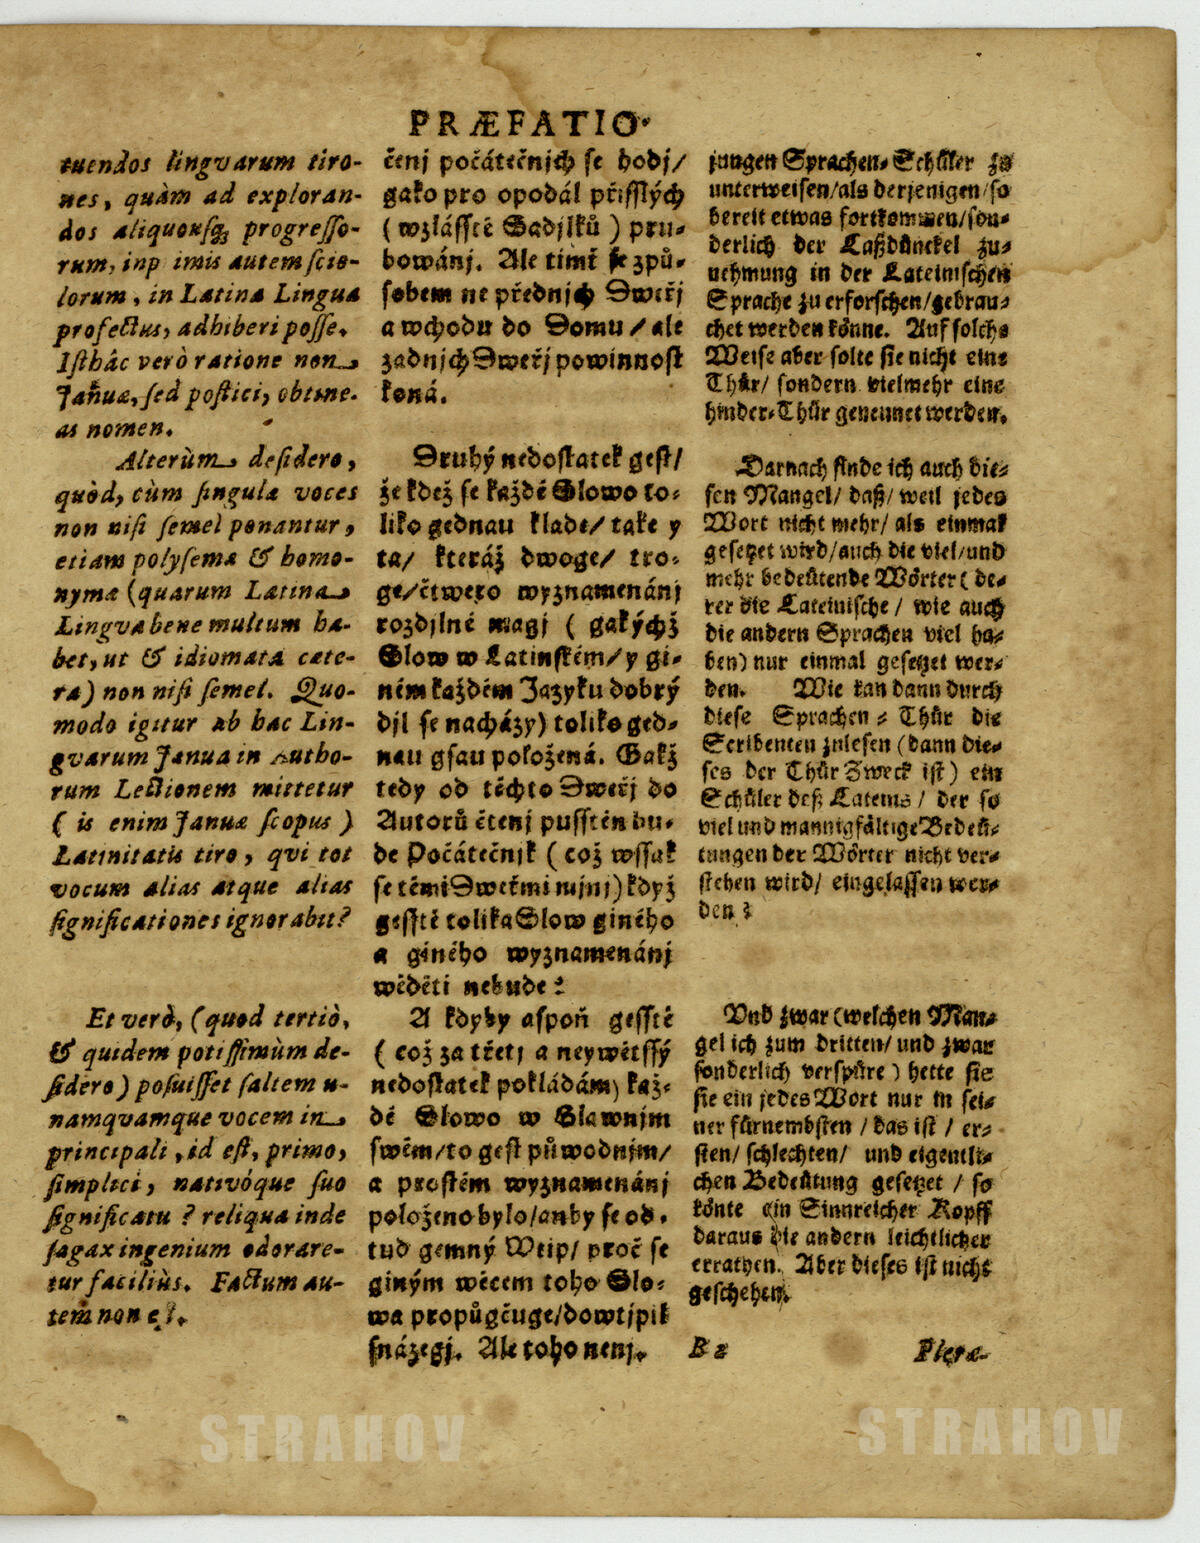 PRÆFATIO.
tuendos lingvarum tiro-
nes, quàm ad exploran-
dos aliquousq; progresso-
rum, inp imis autem scio-
lorum, in Latina Lingua
profectus, adhiberi posse.
Isthâc verò ratione non
Januæ, sed postici, obtine-
at nomen.
Alterùm desidero,
quòd, cùm singulæ voces
non nisi semel ponantur,
etiam polysema & homo-
nyma (quarum Latina
Lingva bene multum ha-
bet, ut & idiomata cæte-
ra) non nisi semel. Quo-
modo igitur ab hac Lin-
gvarum Janua in Autho-
rum Lectionem mittetur
( is enim Januæ scopus )
Latinitatis tiro, qvi tot
vocum alias atque alias
significationes ignorabit?
Et verò, (quod tertiò,
& quidem potissimùm de-
sidero) posuisset saltem u-
namquamque vocem in
principali, id est, primo,
simplici, nativóque suo
significatu ? reliqua inde
sagax ingenium odorare-
tur faciliùs. Factum au-
tem non est.
čenj počátečnjch se hodj/
gako pro opodál přisslých
( wzlásstě Sadjlků ) pru-
bowánj. Ale tjmť se způ-
sobem ne přednjch Dweřj
a wchodu do Domu / ale
zadnjch Dweřj powinnost
koná.
Druhý nedostatek gest/
že když se každé Slowo to-
liko gednau klade/ take y
ta/ kteráž dwoge/ tro-
ge/čtwero wyznamenánj
rozdjlné magj ( gakýchž
Slow w Latinském/ y gi-
ném každém Jazyku dobrý
djl se nacházy) toliko ged-
nau gsau položená. Gakž
tedy od těchto Dweřj do
Autorů čtenj pusstěn bu-
de Počátečnjk ( což wssak
se těmi Dweřmi mjnj) když
gesstě tolika Slow giného
a giného wyznamenánj
wěděti nebude?
A kdyby aspoň gesstě
( což za třetj a neywětssý
nedostatek pokládám) kaž-
dé Slowo w Hlawnjm
swém/ to gest půwodnjm/
a prostém wyznamenánj
položeno bylo/ anby se od-
tud gemný Wtip/ proč se
giným wěcem toho Slo-
wa propůgčuge/ dowtjpil
snázegj. Ale toho nenj.
jungen Sprachen-Schüler zu
unterweisen/als derjenigen/so
bereit etwas fortkommen/son-
derlich der Laßdünckel zu-
nehmung in der Lateinischen
Sprache zu erforschen/gebrau-
chet werden könne. Auf solche
Weise aber solte sie nicht eine
Thür/ sondern vielmehr eine
hinder-Thür genennet werden.
Darnach finde ich auch die-
sen Mangel/ daß/ weil jedes
Wort nicht mehr/ als einmal
gesetzet wird/auch die viel/und
mehr bedeütende Wörter( de-
rer die Lateinische / wie auch
die andern Sprachen viel ha-
ben) nur einmal gesetzet wer-
den. Wie kan dann durch
diese Sprachen - Thür die
Scribenten zulesen (dann die-
ses der Thür Zweck ist) ein
Schüler deß Lateins / der so
viel und mannigfältige Bedeü-
tungen der Wörter nicht ver-
stehen wird/ eingelassen wer-
den ?
Vnd zwar (welchen Man-
gel ich zum dritten/ und zwar
sonderlich verspüre ) hette sie
sie ein jedes Wort nur in sei-
ner fürnembsten / das ist / er-
sten/ schlechten/ und eigentli-
chen Bedeütung gesetzet / so
könte ein Sinnreicher Kopff
daraus die andern leichtlicher
errathen. Aber dieses ist nicht
geschehen.
B 2 Pleræ-
STRAHOV STRAHOV